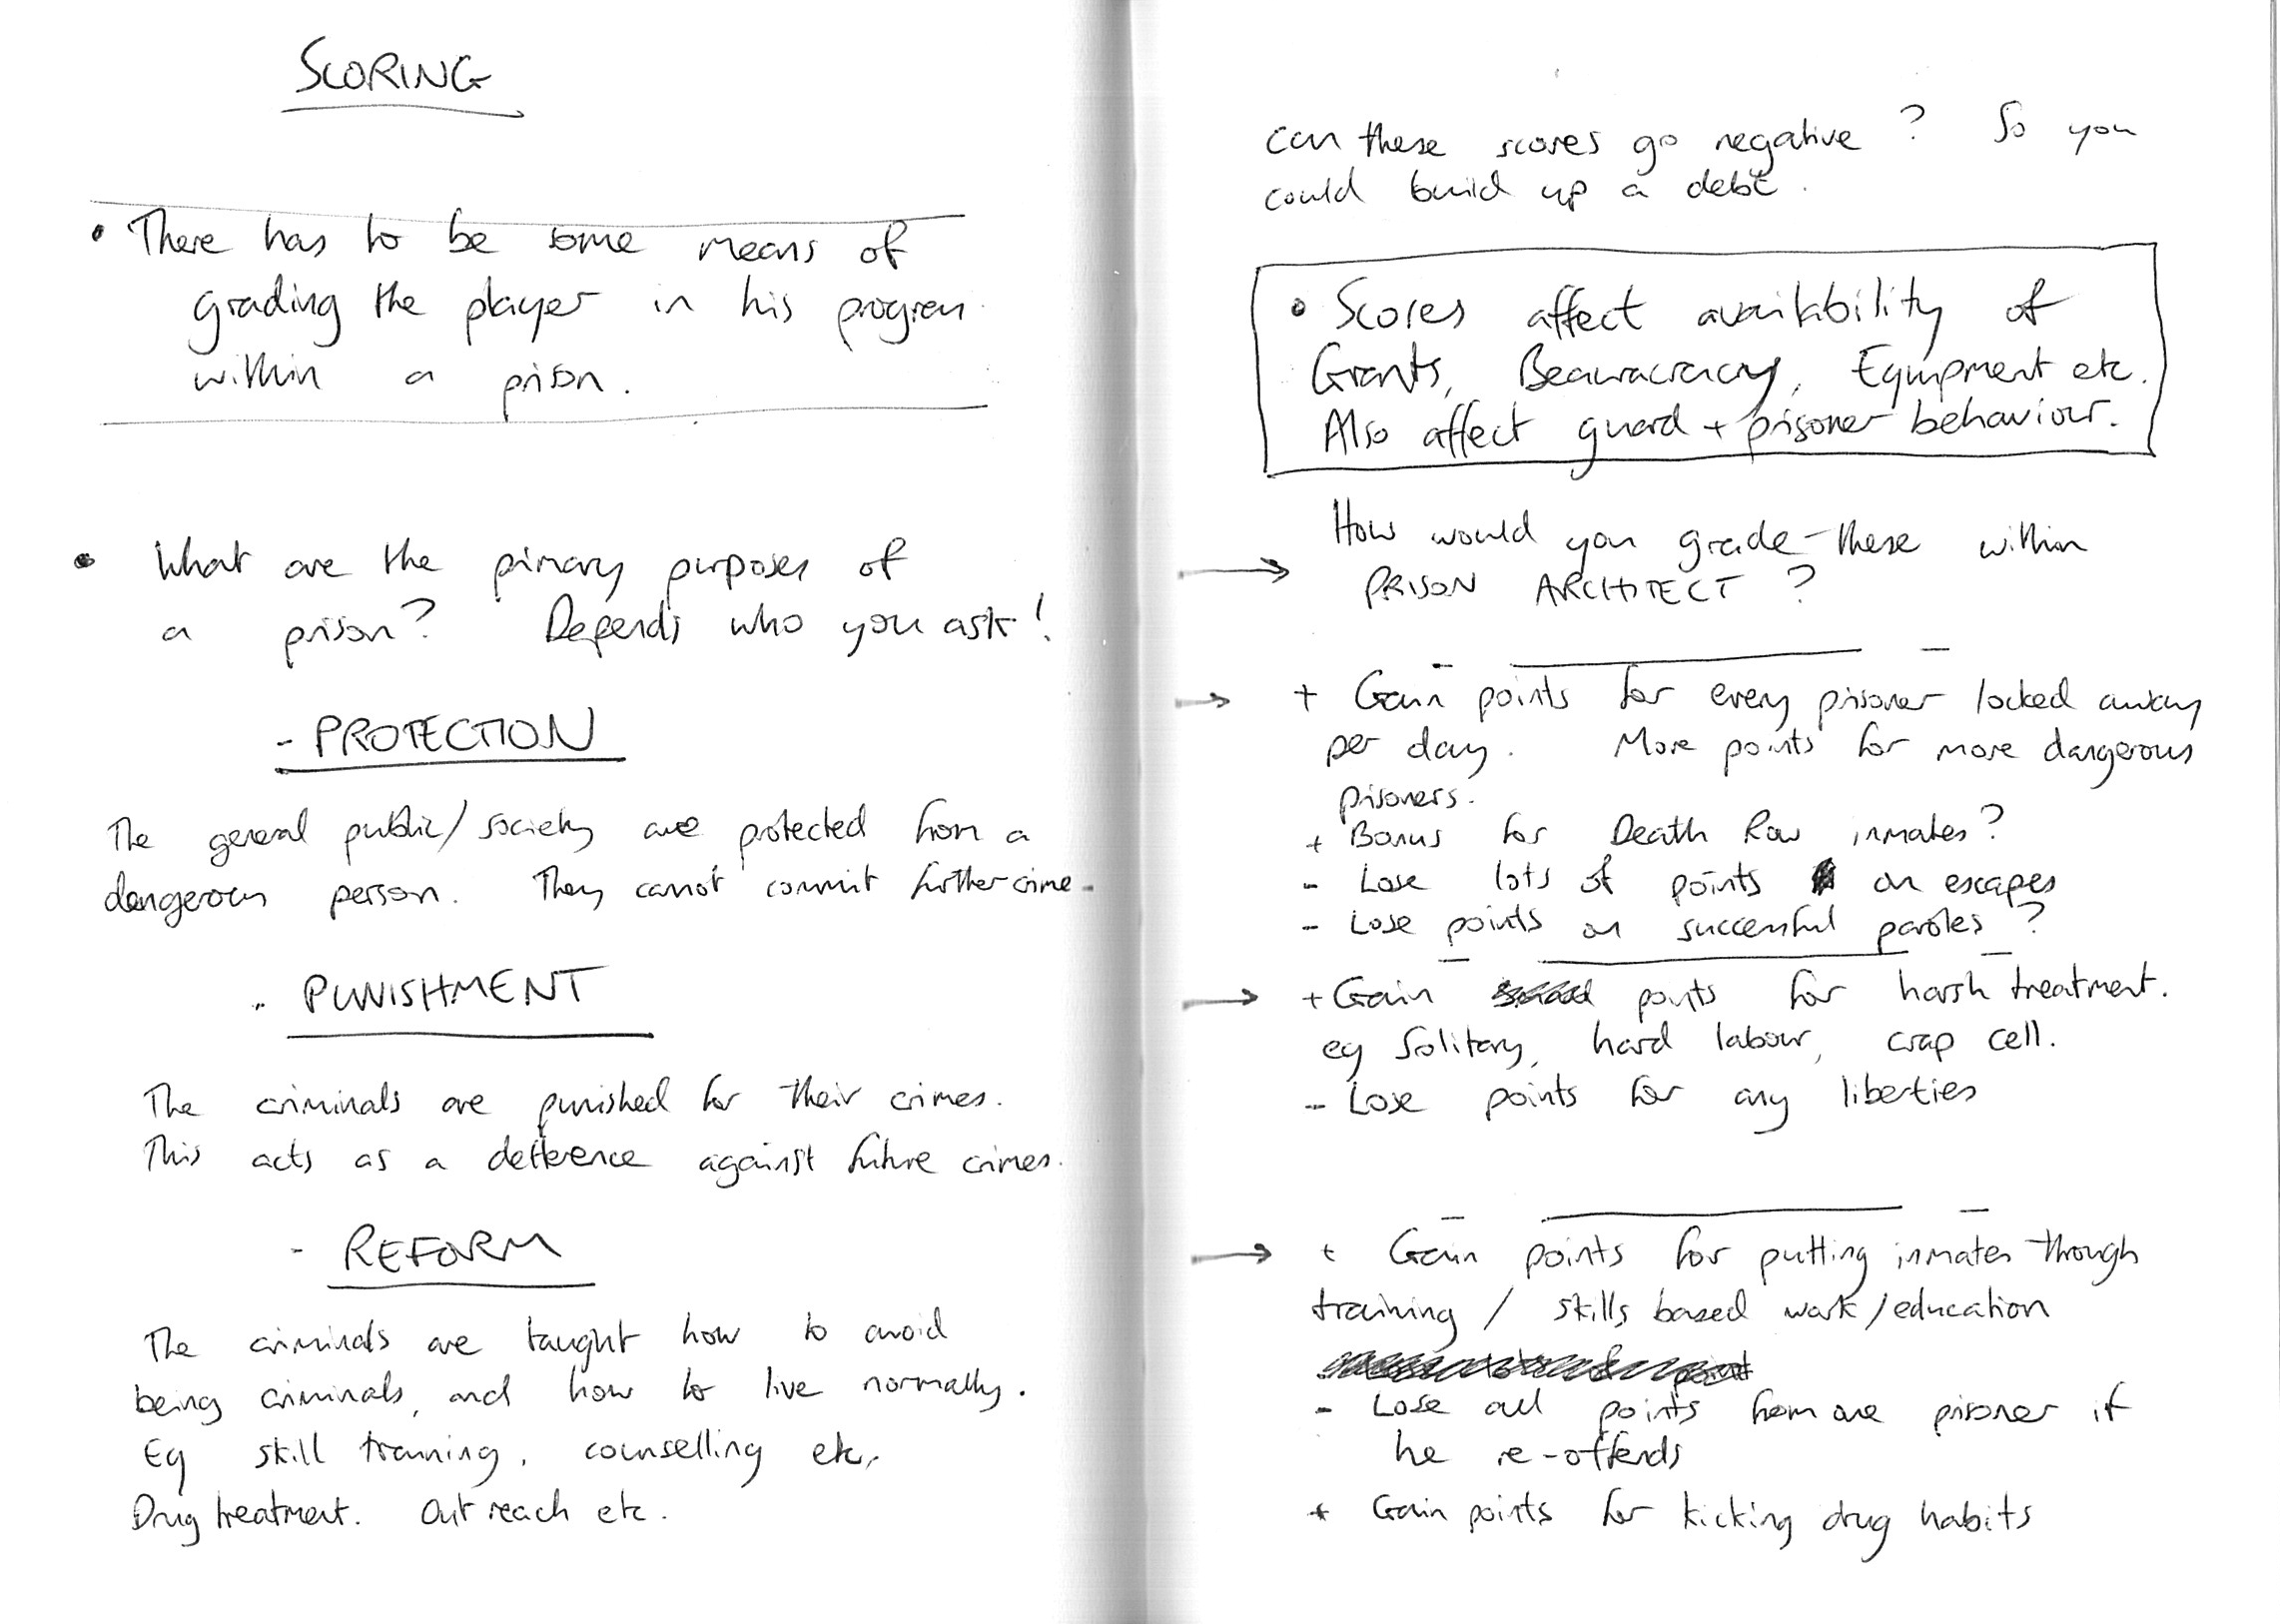 SCORING
• There has to be some means of
grading the player in his progress
within a prison.
• What are the primary purposes of
a prison? Depends who you ask!
- PROTECTION
The general public/society are protected from a
dangerous person. They cannot commit further crime.
- PUNISHMENT
The criminals are punished for their crimes.
This acts as a detterence against future crimes.
- REFORM
The criminals are taught how to avoid
being criminals, and how to live normally.
Eg skill training, counselling etc,
Drug treatment. Out reach etc.
Can these scores go negative? So you
could build up a debt.
• Scores affect availability of
Grants, Beauracracy, Equipment etc.
Also affect guard + prisoner behaviour.
How would you grade these within
PRISON ARCHITECT?
+ Gain points for every prisoner locked away
per day. More points for more dangerous
prisoners.
+ Bonus for Death Row inmates?
- Lose lots of points on escapes
- Lose points on successful paroles?
+ Gain points for harsh treatment.
eg Solitary, hard labour, crap cell.
- Lose points for any liberties
+ Gain points for putting inmates through
training / skills based work/education
- Lose all points from one prisoner if
he re-offends
+ Gain points for kicking drug habits